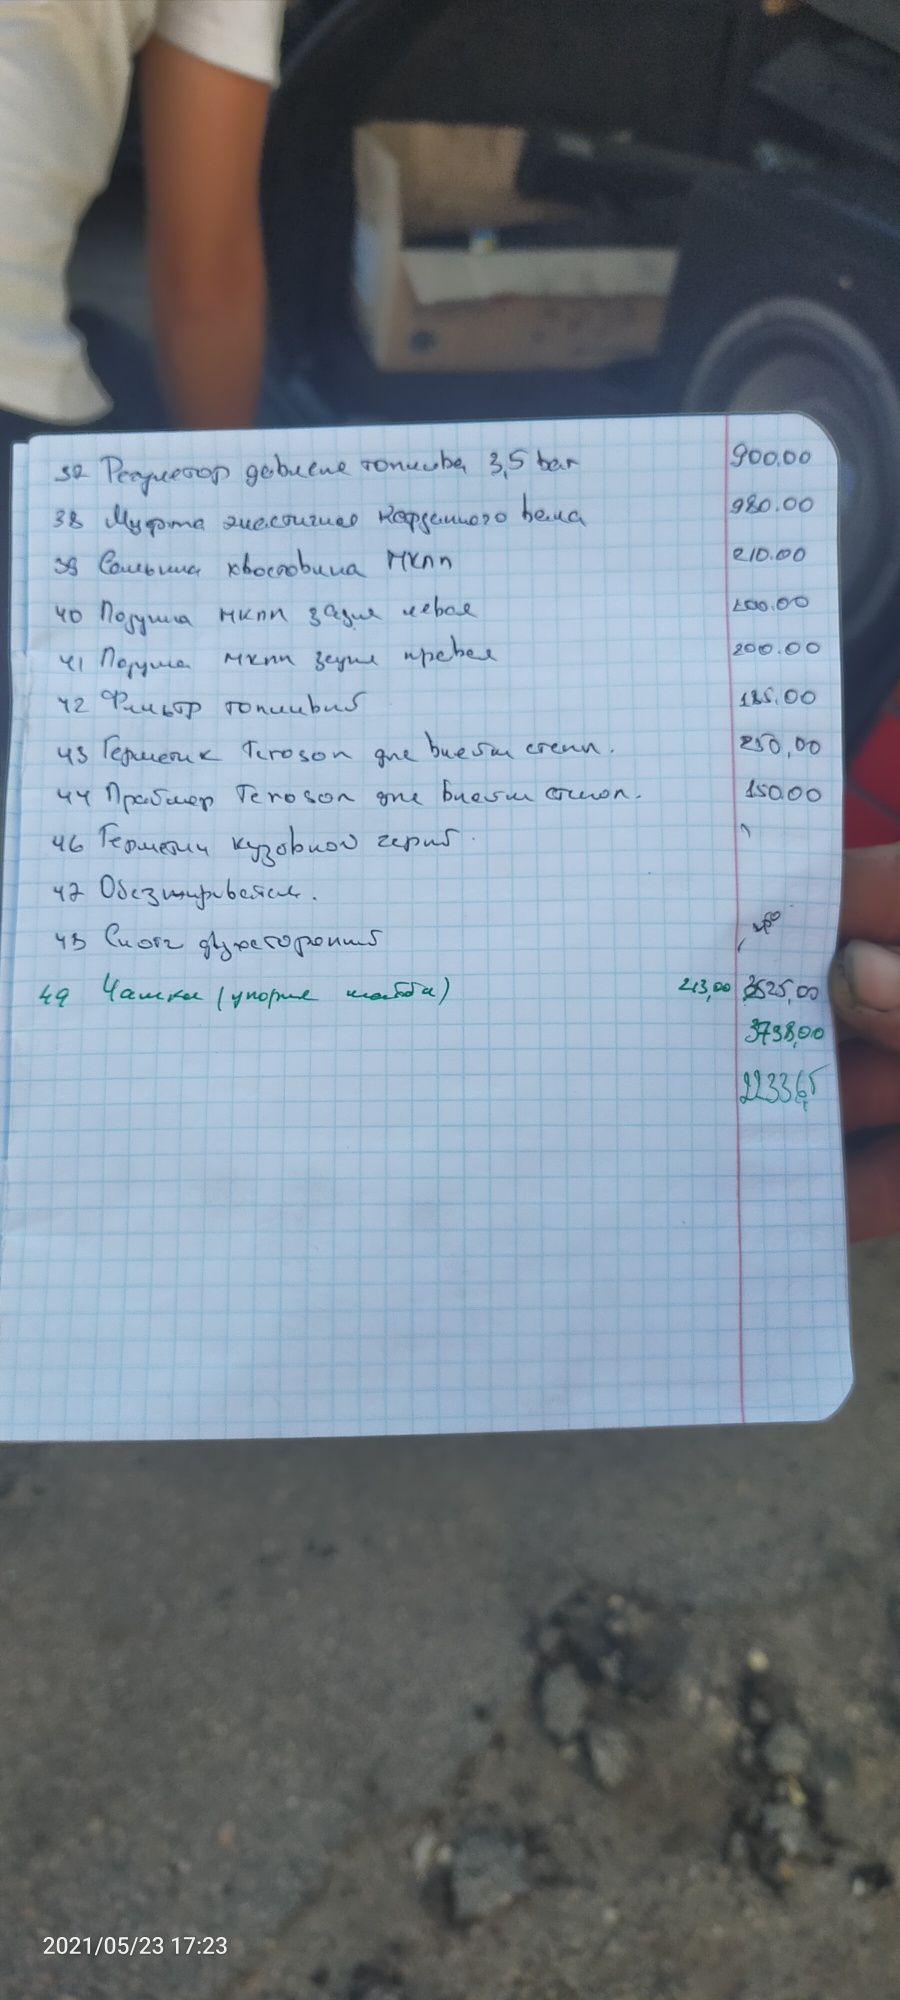 37 Регулятор давление топлива 3,5 bar 900.00
38 Муфта эластичная карданного вала 980.00
39 Сальник хвостовика МКПП 210.00
40 Подушка МКПП задняя левая 200.00
41 Подушка МКПП задняя правая 200.00
42 Фильтр топливный 185.00
43 Герметик Teroson для вклейки стекл. 250,00
44 Праймер Teroson для вклейки стекол. 150.00
46 Герметик кузовной серый.
47 Обезжириватель.
48 Скотч двухсторонний
49 Чашка (упорные шайба) 213,00 3525,00
3738,00
22336,5
2021/05/23 17:23